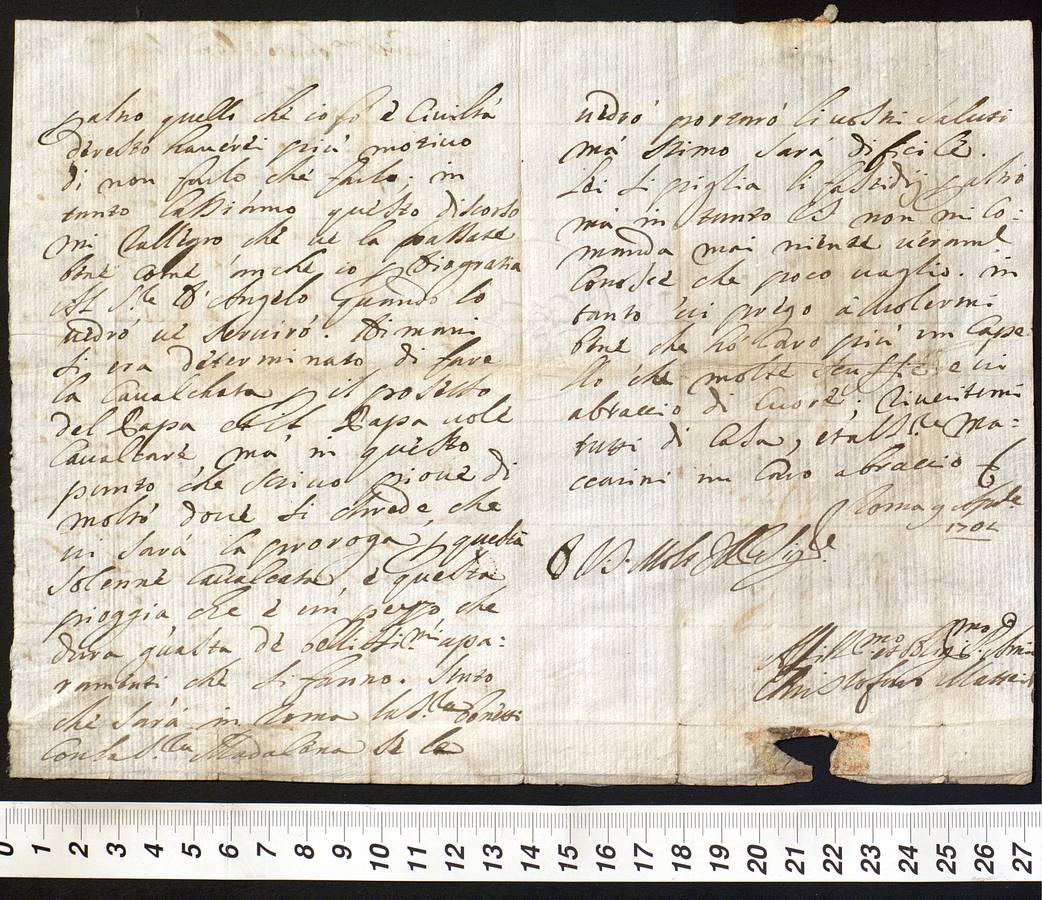 p altro quello che io fo è Civiltà
di resto haverei più motivo
di non farlo che farlo; in
tanto lassiamo questo discorso
mi rallegro che ve la passate
bene come anche io p Dio grazia
Al S.re D'Angelo quando lo
vedrò vè servirò. Dimani
si era determinato di fare
la Cavalchata p il possesso
del Papa et il Papa vole
Cavalcare mà in questo
punto che scrivo piove di
molto dove si chrede che
vi sarà la proroga p questa
solenne Cavalcata è questa
pioggia che è un pezzo che
dura guasta dè bellissi.mi appa:
ramenti che si fanno. Suto
che sarà in Roma la S.ra
Con la S.ra Madalena se le
vedrò porterò li vostri saluti
mà stimo sarà dificile.
Lei si piglia li fastidij p altro
mà in tanto VS non mi Co:
manda mai niente veram.e
Conosce che poco vaglio. in
tanto vi prego à volermi
bene che hò Caro più un Cape:
llo che molte scuffie e vi
abraccio di Cuore; riveritemi
tutti di Casa, et al S.re Ma:
ccarini un Caro abraccio
Roma 9 Aprile
1701
D V.S. Molto Ill.re Sig.re
Aff.mo et Obblig.mo S.
Christofano Massei
0 1 2 3 4 5 6 7 8 9 10 11 12 13 14 15 16 17 18 19 20 21 22 23 24 25 26 27